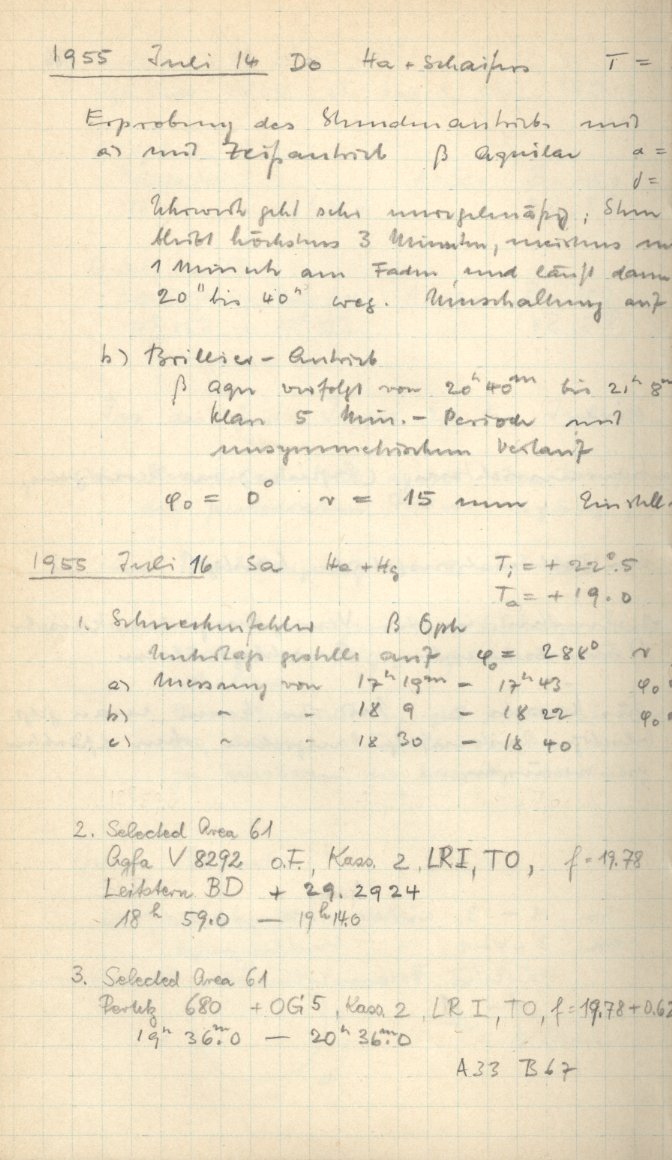 1955 Juli 14 Do Ha + Schaifers T =
Erprobung des Stundenantriebs und
a) mit Zeißantrieb β Aquilae α =
δ =
Uhrwerk geht sehr unregelmäßig, Stern
bleibt höchstens 3 Minuten, meistens
1 Minute am Faden und läuft dann
20" bis 40" weg. Umschaltung auf
b) Brillier - Antrieb
β Aqu verfolgt von 20ʰ 40ᵐ bis 21ʰ 8ᵐ
klare 5 Min. - Periode mit
unsymmetrischem Verlauf
φ₀ = 0° r = 15 mm
1955 Juli 16 Sa Ha + Hg Tᵢ = + 22°.5
Tₐ = + 19.0
1. Schneckenfehler β Oph
gestellt auf φ₀ = 288° r
a) Messung von 17ʰ 19ᵐ - 17ʰ 43 φ₀
b) " - 18 9 - 18 22 φ₀
c) " - 18 30 - 18 40
2. Selected Area 61
Agfa V 8292 o.F., Kass. 2, LR I, TO, f = 19.78
Leitstern BD + 29. 2924
18ʰ 59.0 — 19ʰ 14.0
3. Selected Area 61
680 + OG 5, Kass. 2, LR I, TO, f = 19.78 + 0.62
19ʰ 36ᵐ.0 — 20ʰ 36ᵐ.0
A33 B67